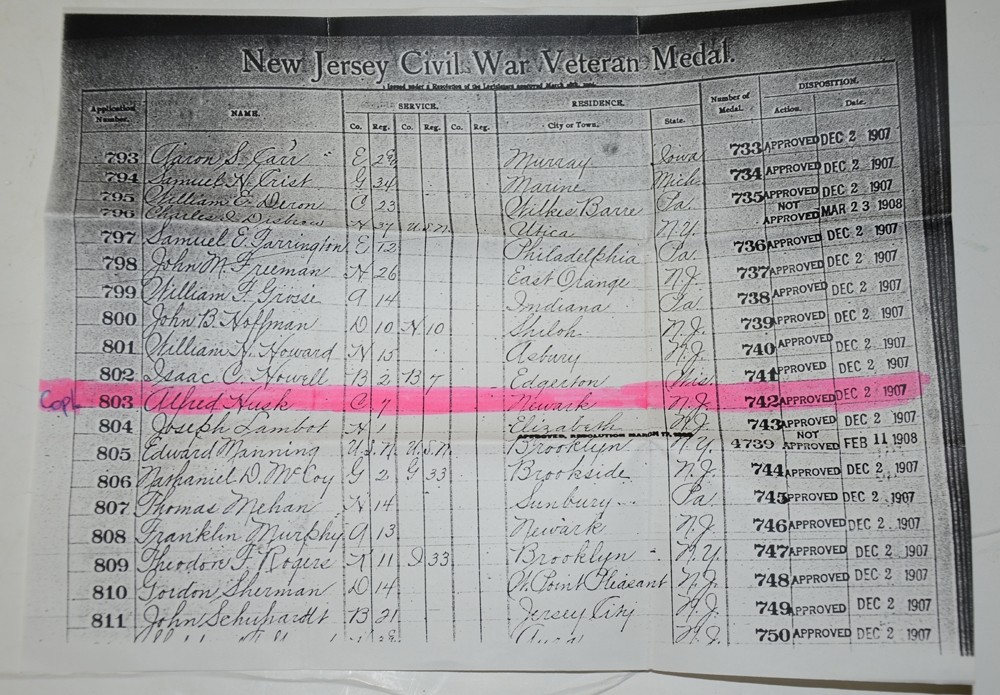 New Jersey Civil War Veteran Medal.
Issued under a Resolution of the Legislature approved March
Application Number. NAME. SERVICE. RESIDENCE. Number of Medal. DISPOSITION.
Co. Reg. Co. Reg. Co. Reg. City or Town. State. Action. Date.
793 Aaron S. Carr E Murray Iowa 733 APPROVED DEC 2 1907
794 Samuel N. Crist G 34 Marine Mich. 734 APPROVED DEC 2 1907
795 William Deron C 23 Wilkes Barre Pa. 735 APPROVED DEC 2 1907
796 Charles Utica N.Y. NOT APPROVED MAR 23 1908
797 Samuel E. Farrington E 12 Philadelphia Pa. 736 APPROVED DEC 2 1907
798 John M. Freeman H 26 East Orange N.J. 737 APPROVED DEC 2 1907
799 William F. Grosse G 14 Indiana Pa. 738 APPROVED DEC 2 1907
800 John B. Hoffman D 10 H 10 Shiloh N.J. 739 APPROVED DEC 2 1907
801 William H. Howard H 15 Asbury N.J. 740 APPROVED DEC 2 1907
802 Isaac C. Howell B 2 B 7 Edgerton Wis. 741 APPROVED DEC 2 1907
Copl. 803 Alfred Husk C 7 Newark N.J. 742 APPROVED DEC 2 1907
804 Joseph Lambot H 1 Elizabeth N.J. 743 APPROVED DEC 2 1907
APPROVED, RESOLUTION MARCH
805 Edward Manning U.S.N. U.S.N. Brooklyn N.Y. 4739 NOT APPROVED FEB 11 1908
806 Nathaniel D. McCoy G 2 G 33 Brookside N.J. 744 APPROVED DEC 2 1907
807 Thomas Mehan H 14 Sunbury Pa. 745 APPROVED DEC 2 1907
808 Franklin Murphy G 13 Newark N.J. 746 APPROVED DEC 2 1907
809 Theodore F. Rogers K 11 I 33 Brooklyn N.Y. 747 APPROVED DEC 2 1907
810 Gordon Sherman D 14 Pt. Point Pleasant N.J. 748 APPROVED DEC 2 1907
811 John Schuhardt B 21 Jersey City N.J. 749 APPROVED DEC 2 1907
N.J. 750 APPROVED DEC 2 1907